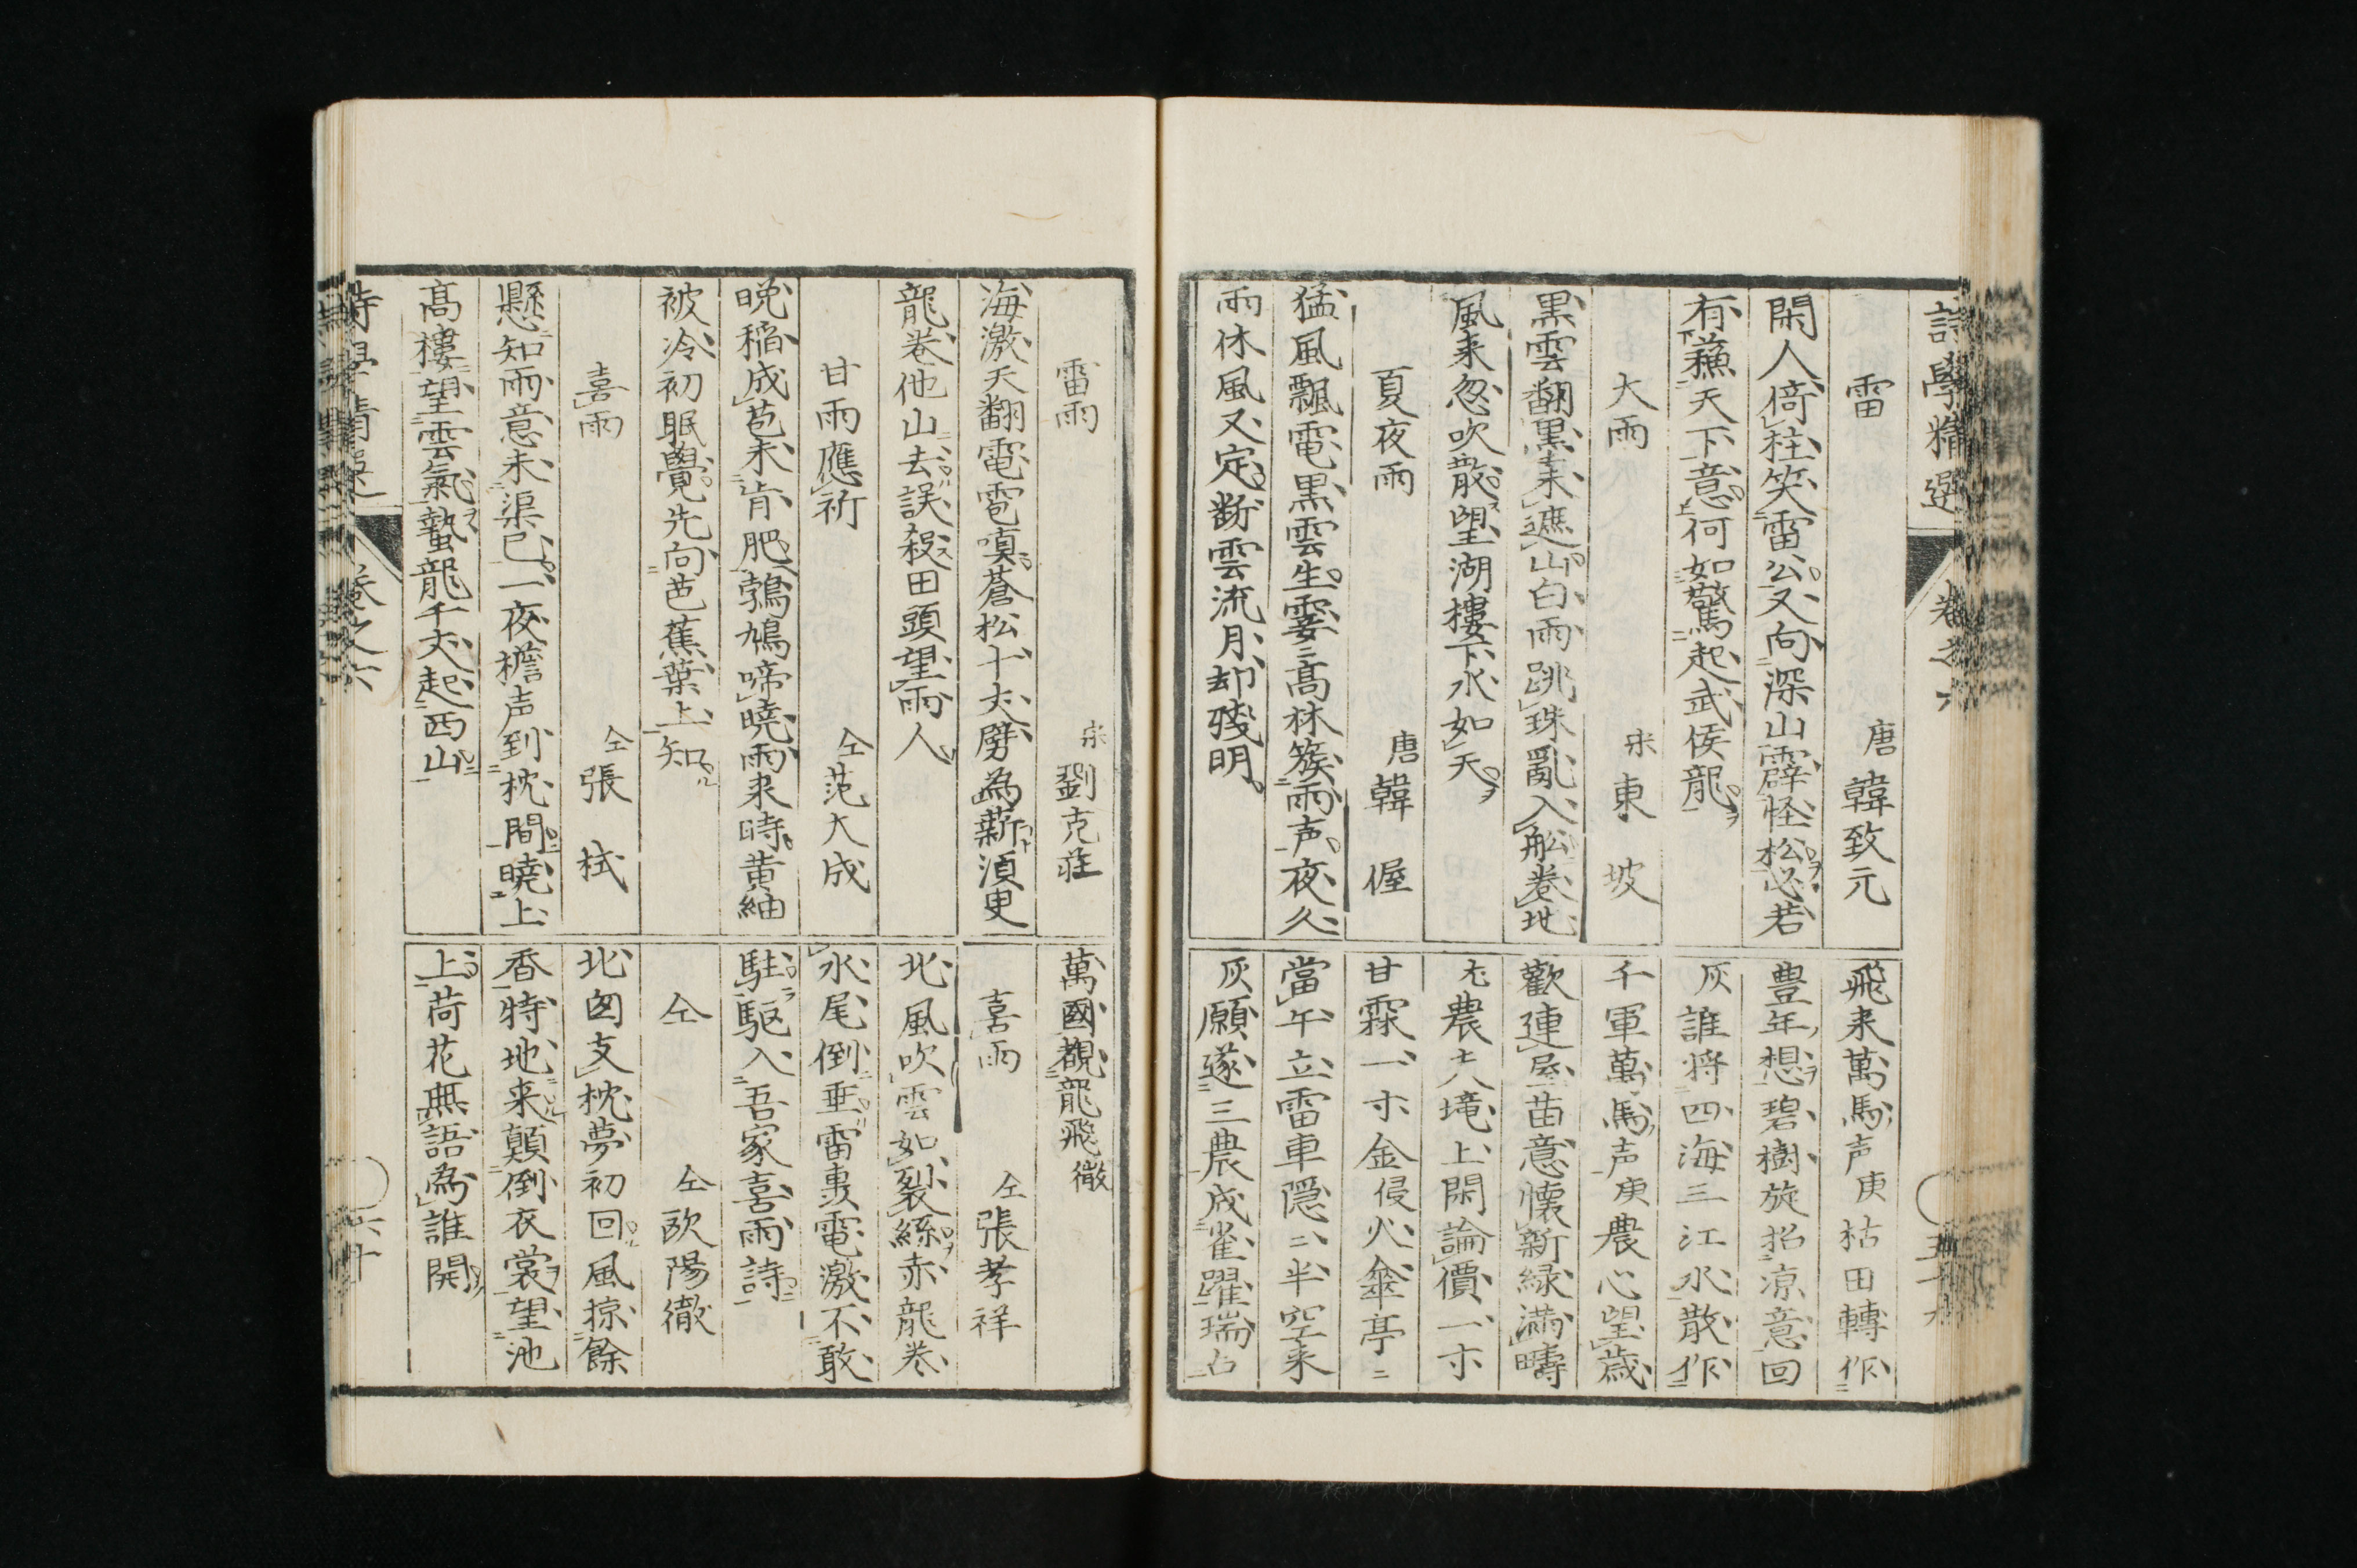 詩學精選 卷之六
雷 唐 韓致元
閑人倚柱笑雷公又向深山霹怪松必若
有蘓天下意何如驚起武侯龍
大雨 宋 東坡
黒雲翻黒未遮山白雨跳珠亂入舩卷地
風来忽吹散望湖樓下水如天
夏夜雨 唐 韓偓
猛風飄電黒雲生霎〻高林簇雨声夜久
雨休風又定断雲流月却残明
飛来萬馬声庚枯田轉作
豊年想碧樹旋招凉意回
灰誰将四海三江水散作
千軍萬馬声庚農心望歳
歡連屋苗意懐新緑満疇
尤農大滝上閑論價一寸
甘霖一寸金侵火傘亭〻
當午立雷車隠〻半空来
灰願遂三農成雀躍瑞占
雷雨 宋 劉克莊
海激天翻電雹嗔蒼松十丈劈為薪湏臾
龍巻他山去誤殺田頭望雨人
甘雨應祈 仝 范大成
晚稲成苞未肯肥鵓鳩啼曉雨来時黄紬
被冷初眠覺先向芭蕉葉上知
喜雨 仝 張栻
懸知雨意未渠已一夜檐声到枕間曉上
髙樓望雲氣蟄龍千丈起西山
萬國觀龍飛徽
喜雨 仝 張孝祥
北風吹雲如裂絲赤龍巻
水尾倒垂雷轟電激不敢
駐驅入吾家喜雨詩
仝 仝 欧陽徹
北囱支枕夢初回風掠餘
香特地来顛倒衣裳望池
上荷花無語為誰開
詩學精選 卷之六 六十